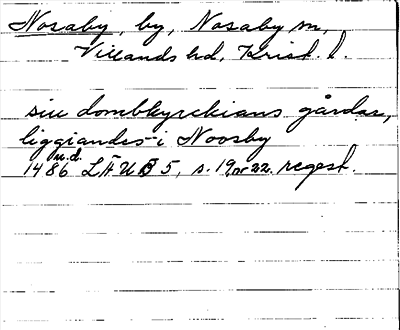 Nosaby, by, Nosaby sn,
Villands hd, Krist. l.
siu dombkyrckians gårdar,
liggiandes i Noosby
1486 u.d. LÄUB 5, s. 19, nr 22. regest.